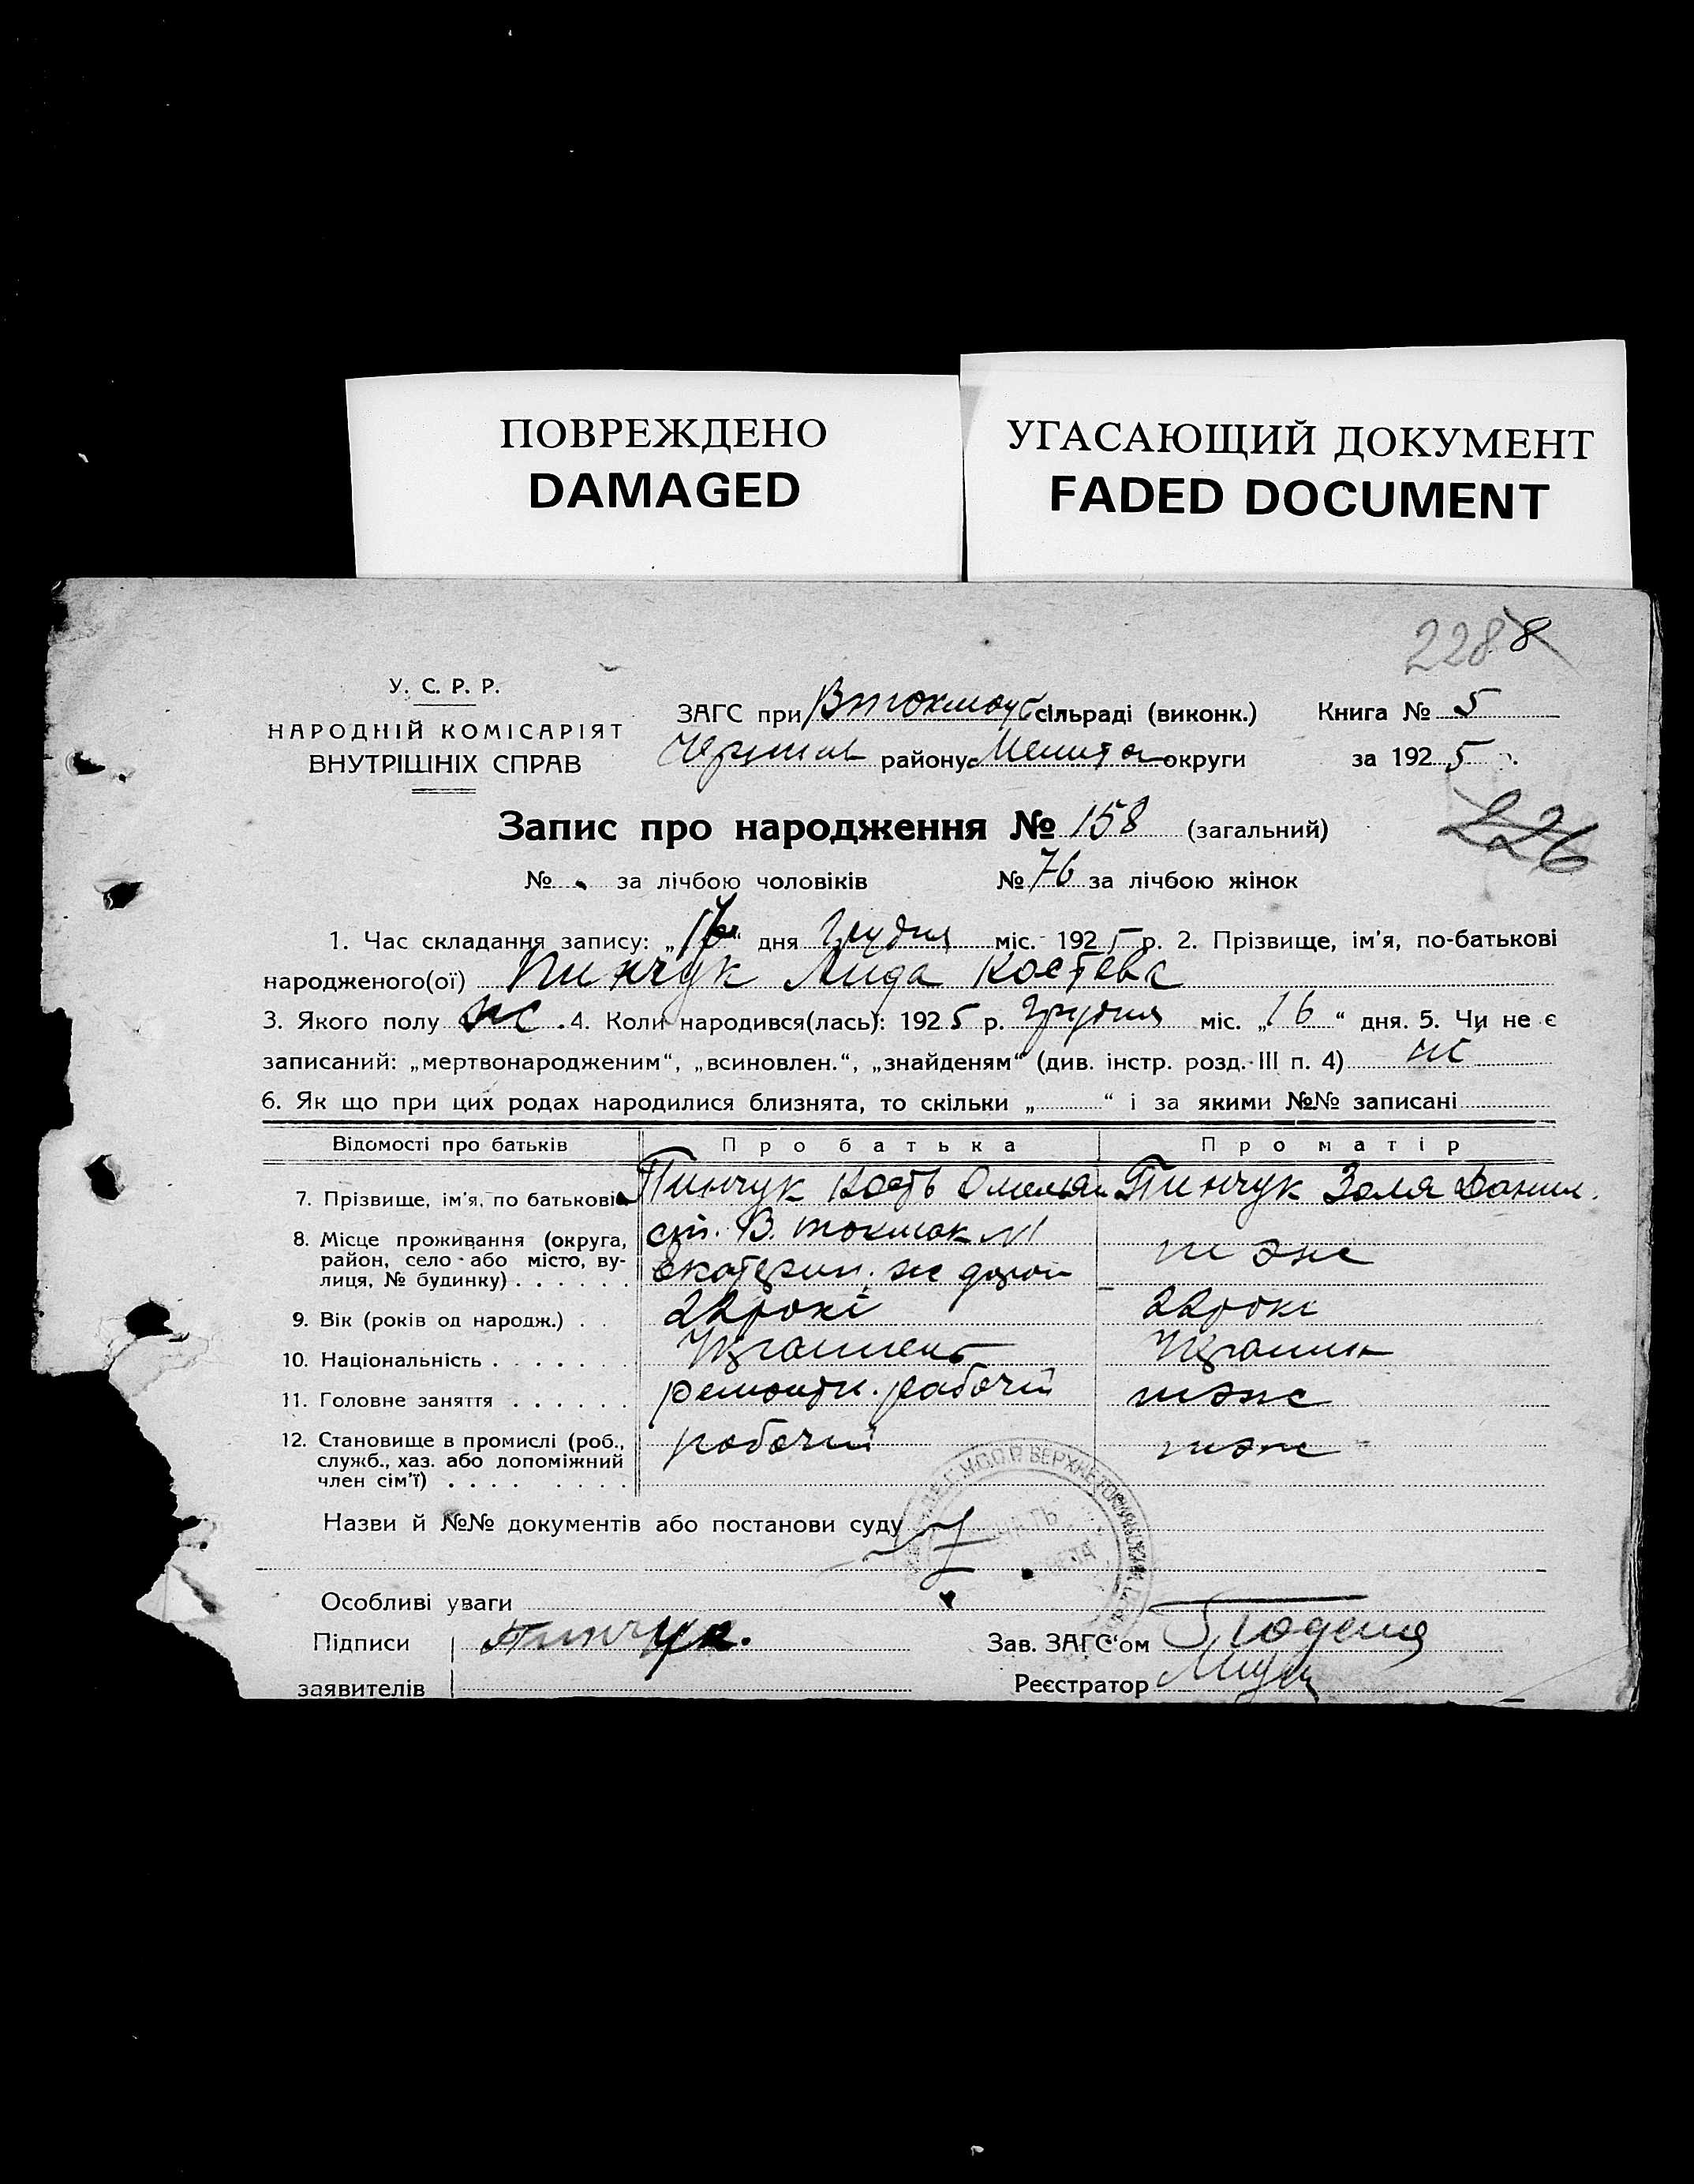 ПОВРЕЖДЕНО
DAMAGED
УГАСАЮЩИЙ ДОКУМЕНТ
FADED DOCUMENT
228 8
У. С. Р. Р.
НАРОДНІЙ КОМІСАРІЯТ
ВНУТРІШНІХ СПРАВ
ЗАГС при сільраді (виконк.) Книга № 5
району округи за 1925
Запис про народження № 158 (загальний)
226
№ за лічбою чоловіків № 76 за лічбою жінок
1. Час складання запису: „ “ дня Грудня міс. 1925 р. 2. Прізвище, ім'я, по-батькові
народженого(ої) Пинчук Лида Костева
3. Якого полу ж. 4. Коли народився(лась): 1925 р. Грудня міс. „16“ дня. 5. Чи не є
записаний: „мертвонародженим“, „всиновлен.“, „знайденям“ (див. інстр. розд. III п. 4)
6. Як що при цих родах народилися близнята, то скільки „ “ і за якими №№ записані
Відомості про батьків Про батька Про матір
7. Прізвище, ім'я, по батькові Пинчук Кость Омельян Пинчук Золя Данил.
8. Місце проживання (округа, район, село або місто, вулиця, № будинку) ст. В. токмак №1 тож
Екатерин. ж дороги
9. Вік (років од народж.) 22 рокі 22 рокі
10. Національність
11. Головне заняття ремонтн. рабочий тож
12. Становище в промислі (роб., служб., хаз. або допоміжний член сім'ї) рабочий тож
Назви й №№ документів або постанови суду
Особливі уваги
Підписи Пинчук. Зав. ЗАГС'ом
заявителів Реєстратор